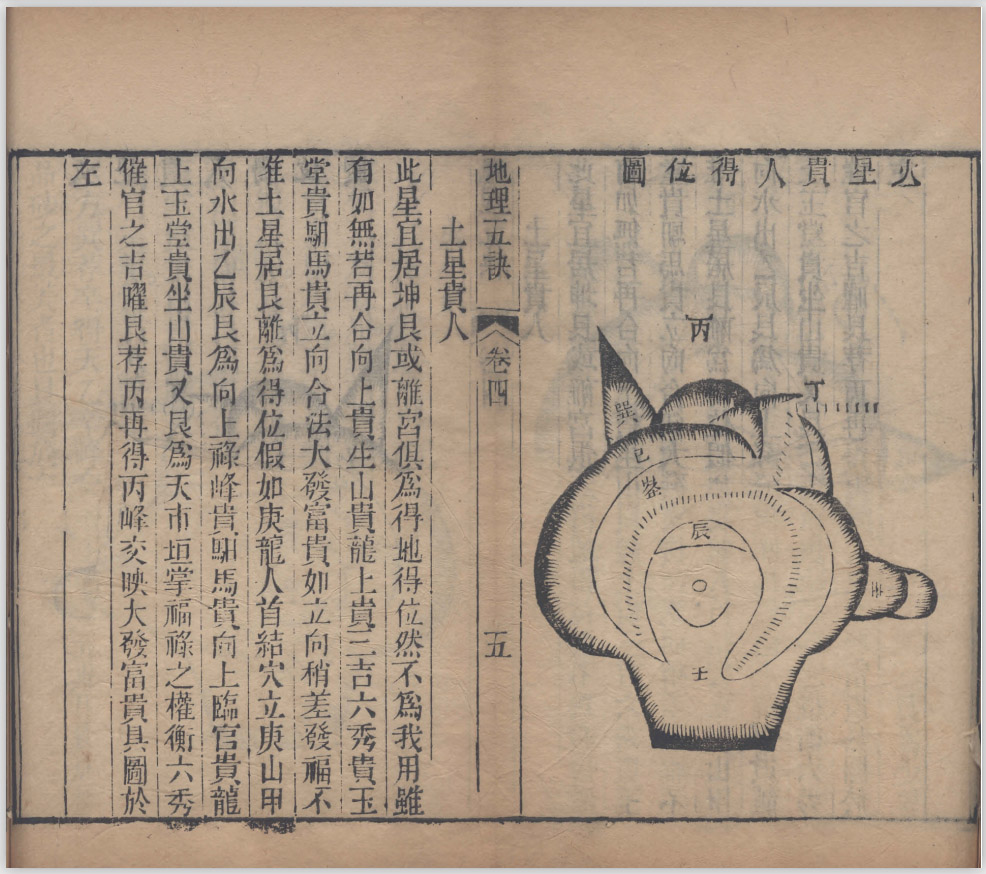 火星貴人得位圖
丙
丁
巽
巳
辰
壬
地理五訣
卷四
五
土星貴人
此星宜居坤艮或離宮俱爲得地得位然不爲我用雖
有如無若再合向上貴生山貴龍上貴三吉六秀貴玉
堂貴馹馬貴立向合法大發富貴如立向稍差發福不
准土星居艮離爲得位假如庚龍人首結穴立庚山甲
向水出乙辰艮爲向上祿峰貴馹馬貴向上臨官貴龍
上玉堂貴坐山貴又艮爲天市垣掌福祿之權衡六秀
催官之吉曜艮荐丙再得丙峰交映大發富貴具圖於
左